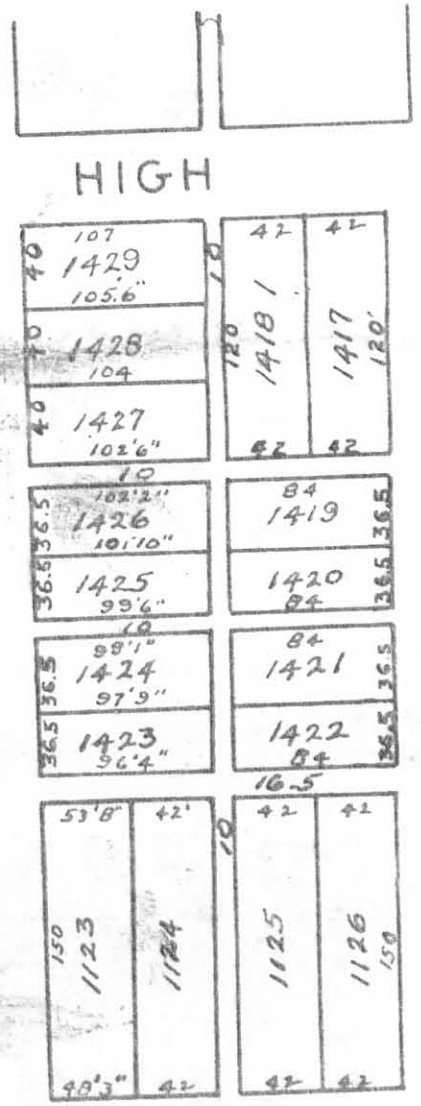 HIGH
107
40
1429
105.6"
40
1428
104
40
1427
102'6"
10
42
42
120
1418
1417
120'
42
42
10
102'2"
36.5
1426
101'10"
36.5
1425
99'6"
84
1419
36.5
1420
36.5
84
10
99'1"
36.5
1424
97'9"
36.5
1423
96'4"
84
1421
36.5
1422
36.5
84
16.5
53'8"
42'
150
1123
1124
48'3"
42
10
42
42
1125
1126
150
42
42